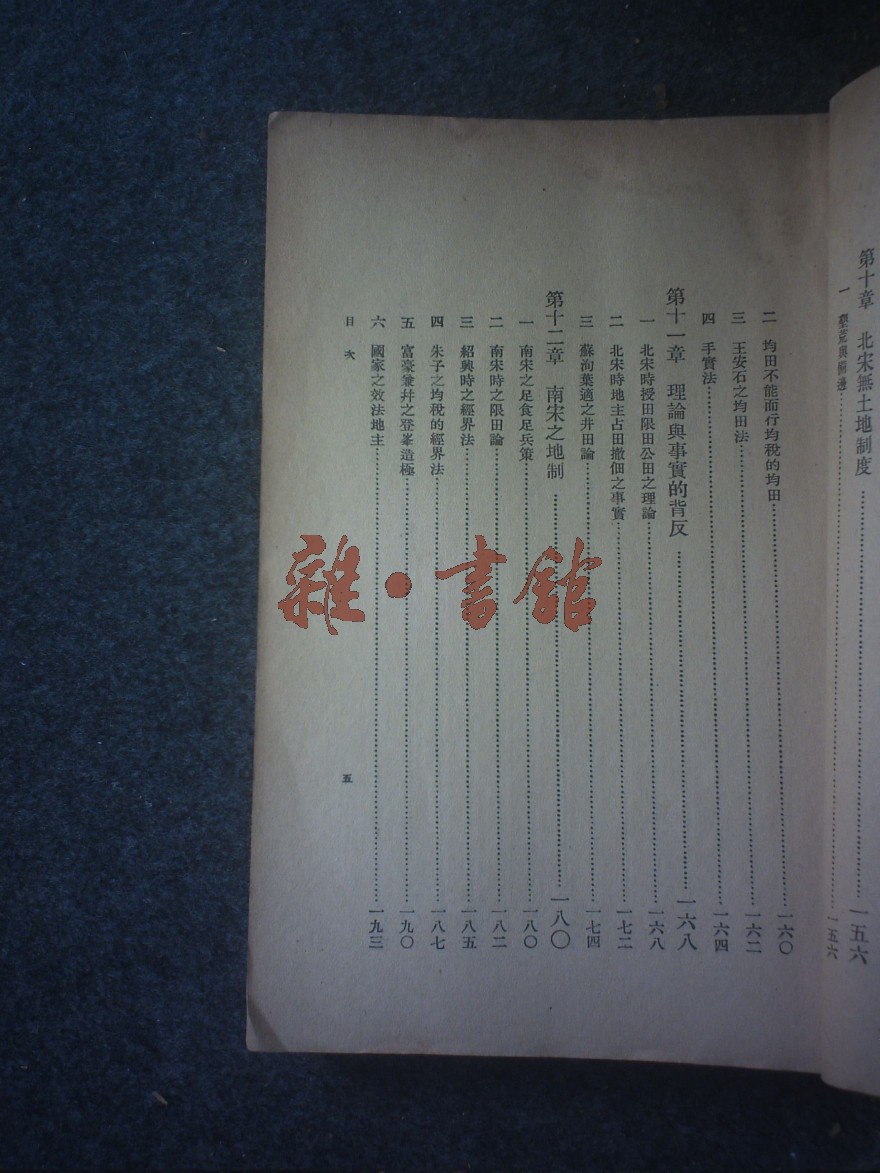 第十章　北宋無土地制度……一五六
一　墾荒與……一五六
二　均田不能而行均稅的均田……一六〇
三　王安石之均田法……一六二
四　手實法……一六四
第十一章　理論與事實的背反……一六八
一　北宋時授田限田公田之理論……一六八
二　北宋時地主占田撤佃之事實……一七二
三　蘇洵葉適之井田論……一七四
第十二章　南宋之地制……一八〇
一　南宋之足食足兵策……一八〇
二　南宋時之限田論……一八二
三　紹興時之經界法……一八五
四　朱子之均稅的經界法……一八七
五　富豪兼幷之登峯造極……一九〇
六　國家之效法地主……一九三
目次
五
雜·書館